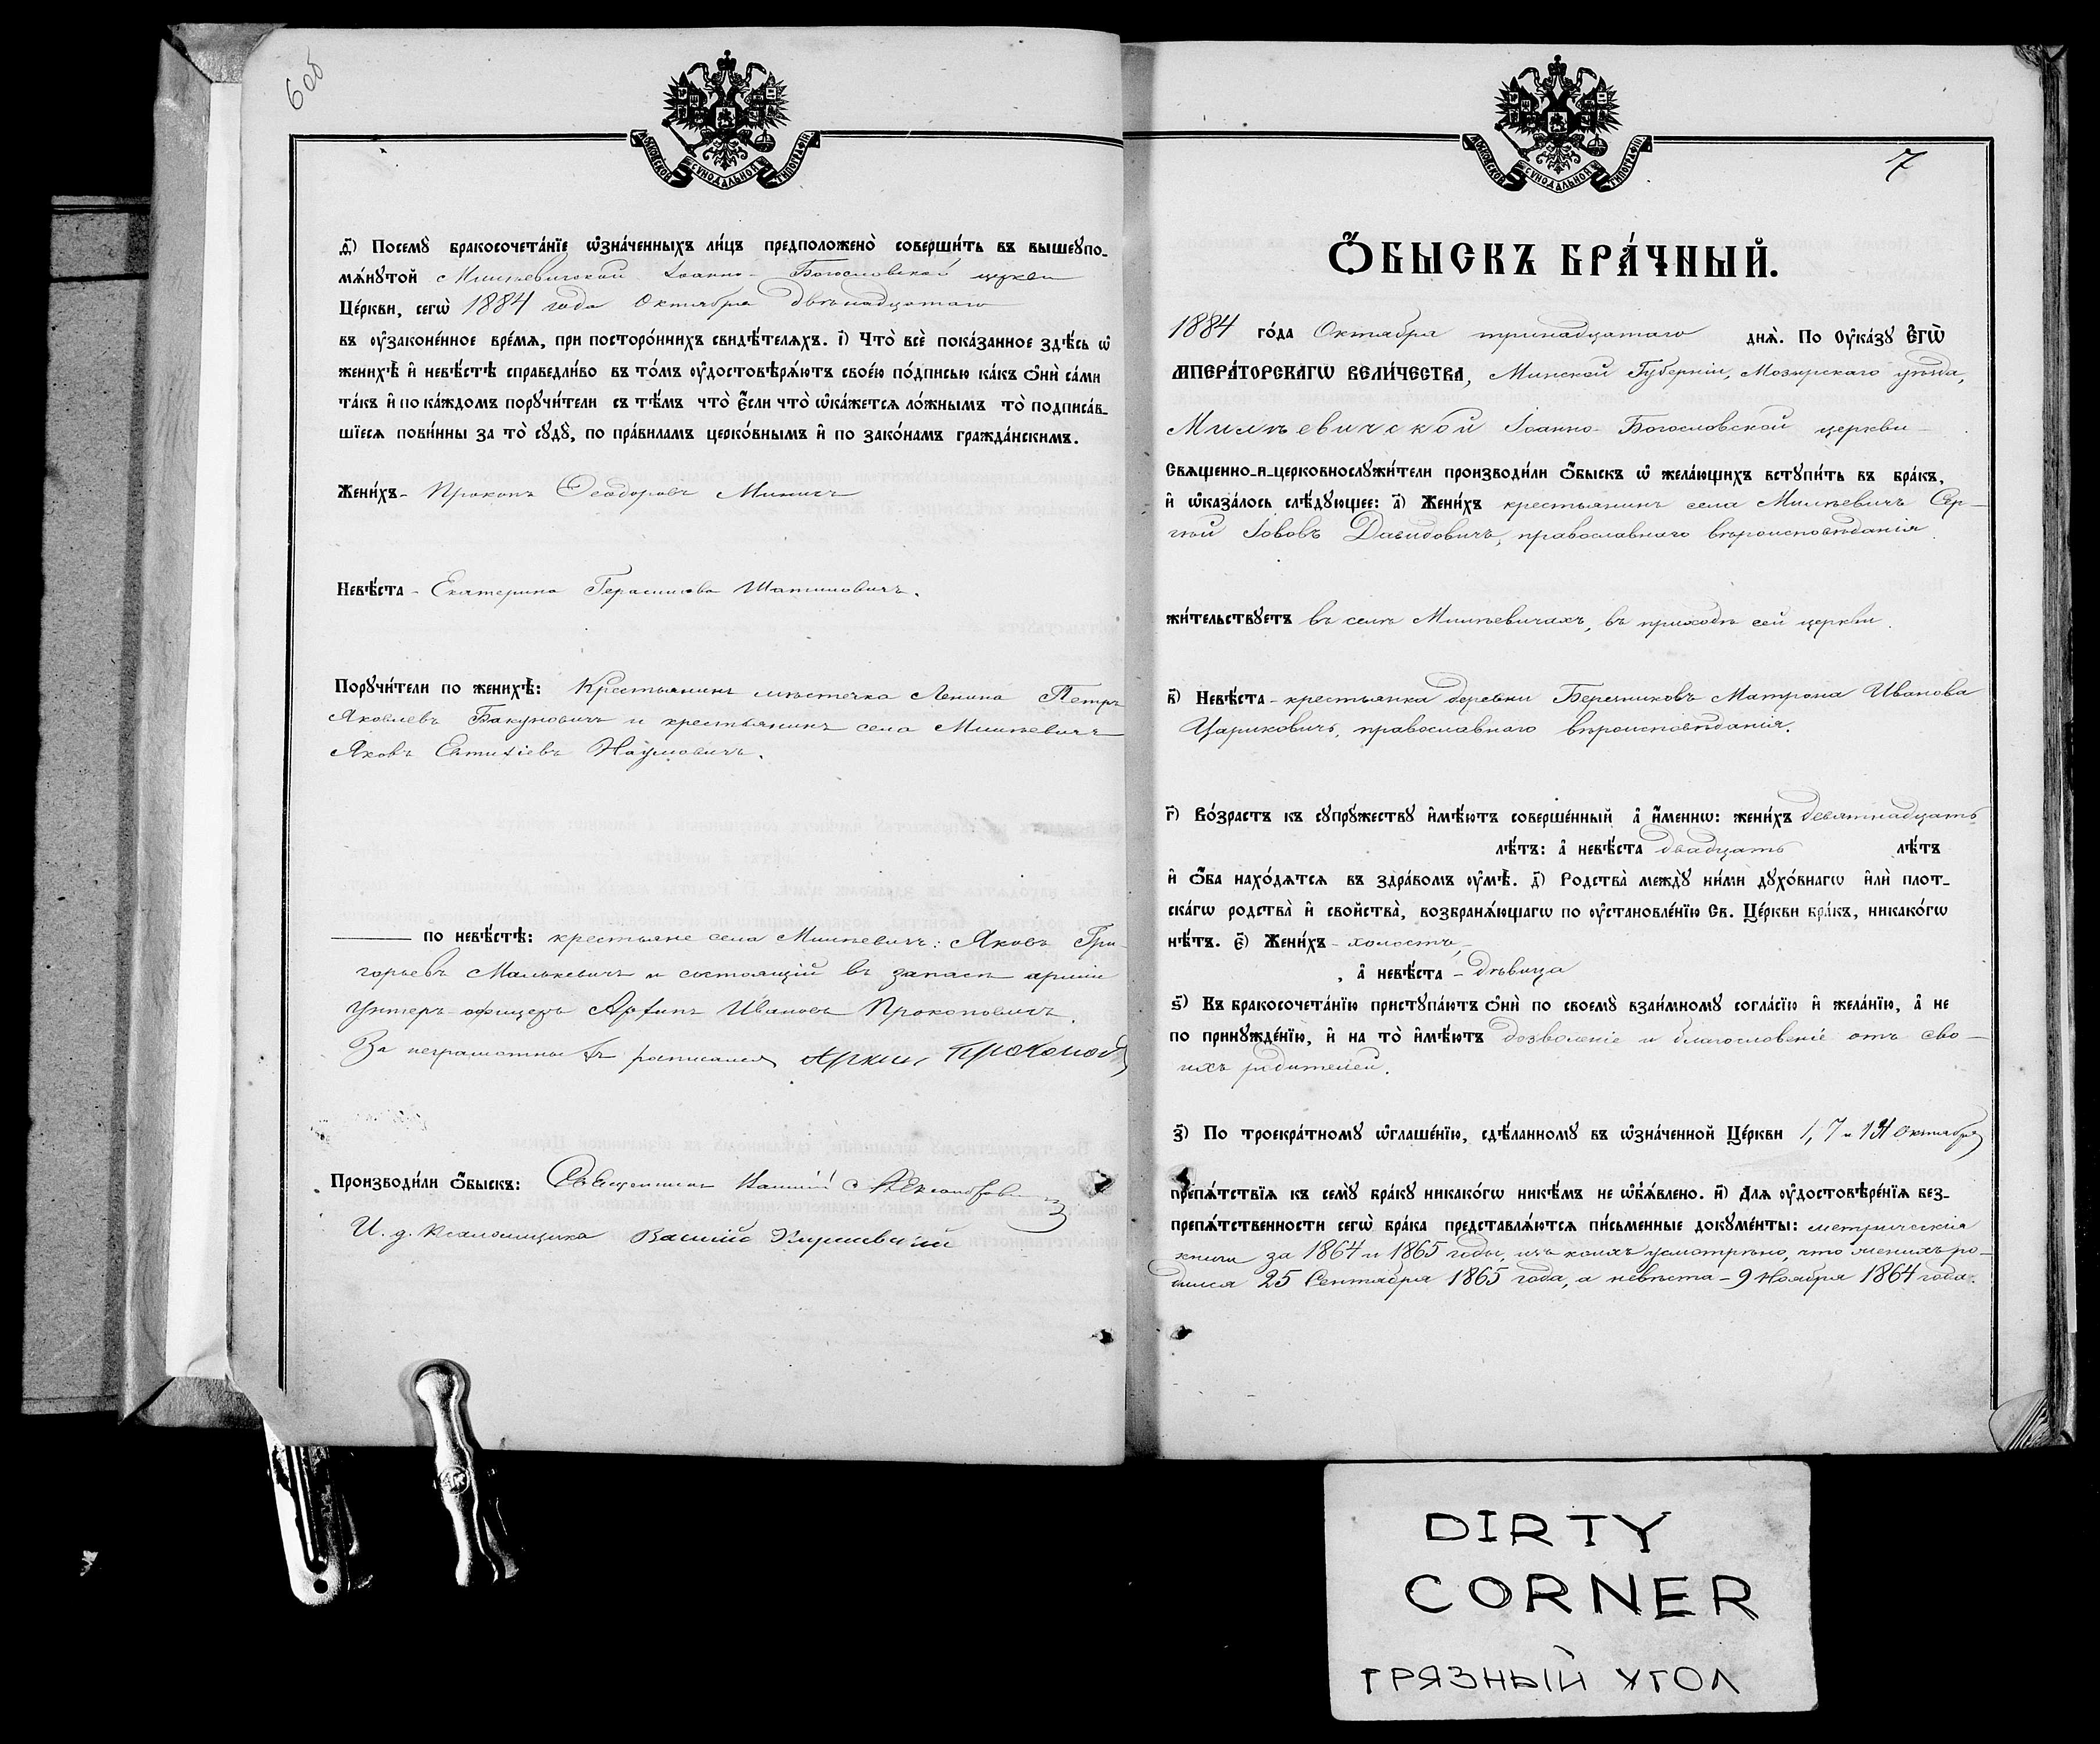 6 об
МОСКОВСКОЙ СѴНОДАЛЬНОЙ ТИПОГРАФІИ
д҃і) Посемꙋ̀ бракосочета́нїе ѡ҆зна́ченныхъ ли́цъ предположено̀ соверши́ть въ вышеꙋпо-
мѧ́нꙋтой Милевичской Іоанно-Богословской церкви
Це́ркви, сегѡ̀ 1884 года Октября двѣнадцатаго
въ ᲂу҆законе́нное вре́мѧ, при посторо́ннихъ свидѣ́телѧхъ. і҃) Что̀ всѐ пока́занное здѣ́сь ѡ҆
женихѣ̀ и҆ невѣ́стѣ справедли́во въ то́мъ ᲂу҆достовѣрѧ́ютъ свое́ю по́дписью ка́къ ѻ҆нѝ са́ми
та́къ и҆ по ка́ждомъ порꙋчи́тели съ тѣ́мъ что̀ є҆́сли что̀ ѡ҆ка́жетсѧ ло́жнымъ то̀ подписа́в-
шїесѧ пови́нны за то̀ сꙋдꙋ̀, по пра́виламъ церко́внымъ и҆ по зако́намъ гражда́нскимъ.
Жени́хъ- Прокопъ Ѳеодоровъ Миничъ
Невѣ́ста - Екатерина Герасимова Шатиловичъ.
Порꙋчи́тели по женихѣ̀: Крестьянинъ мѣстечка Ленина Петръ
Яковлевъ Бакуновичъ и крестьянинъ села Милевичъ
Яковъ Евтихіевъ Наумовичъ.
по невѣ́стѣ: крестьяне села Милевичъ: Яковъ Гри-
горьевъ Малькевичъ и состоящій въ запасѣ арміи
унтеръ-офицеръ Архипъ Ивановъ Прокоповичъ.
За неграмотныхъ росписался Архип Прокопов
Производи́ли ѻ҆́быскъ: Священникъ
И. д. псаломщика Василій
МОСКОВСКОЙ СѴНОДАЛЬНОЙ ТИПОГРАФІИ
7
Ѻ҆́БЫСКЪ БРА́ЧНЫЙ.
1884 го́да Октября тринадцатаго днѧ̀. По ᲂу҆ка́зꙋ Є҆ГѠ̀
ИМПЕРА́ТОРСКАГѠ ВЕЛИ́ЧЕСТВА, Минской Губерніи, Мозырскаго уѣзда,
Милевичской Іоанно-Богословской церкви -
Свѧщенно-и-церковнослꙋжи́тели производи́ли ѻ҆́быскъ ѡ҆ жела́ющихъ встꙋпи́ть въ бра́къ,
и҆ ѡ҆каза́лось слѣ́дꙋющее: а҃) Жени́хъ крестьянинъ села Милевичъ Сер-
гѣй Іововъ Давидовичъ, православнаго вѣроисповѣданія.
жи́тельствꙋетъ въ селѣ Милевичахъ, въ приходѣ сей церкви.
в҃) Невѣ́ста - крестьянка деревни Беречниковъ Матрона Иванова
Цариковичъ, православнаго вѣроисповѣданія.
г҃) Во́зрастъ къ сꙋпрꙋ́жествꙋ и҆мѣ́ютъ соверше́нный а҆̀ и҆́меннѡ: жени́хъ девятнадцать
лѣ́тъ: а҆̀ невѣ́ста двадцать лѣ́тъ
и҆ ѻ҆́ба нахо́дѧтсѧ въ здра́вомъ ᲂу҆мѣ̀. д҃) Родства̀ междꙋ̀ ни́ми дꙋхо́внагѡ и҆лѝ плот-
ска́гѡ родства̀ и҆ свойства̀, возбранѧ́ющагѡ по ᲂу҆становле́нїю Св. Це́ркви бра́къ, никако́гѡ
нѣ́тъ. є҃) Жени́хъ - холостъ,
, а҆̀ невѣ́ста - дѣвица
ѕ҃) Въ бракосочета́нїю пристꙋпа́ютъ ѻ҆нѝ по своемꙋ̀ взаи́мномꙋ согла́сїю и҆ жела́нїю, а҆̀ не
по принꙋжде́нїю, и҆ на то̀ и҆мѣ́ютъ дозволеніе и благословеніе отъ сво-
ихъ родителей.
з҃) По троекра́тномꙋ ѡ҆глаше́нїю, сдѣ́ланномꙋ въ ѡ҆зна́ченной Це́ркви 1, 7 и Октября
препѧ́тствїѧ къ семꙋ̀ бра́кꙋ никако́гѡ никѣ́мъ не ѡ҆б̾ѧ́влено. и҃) Длѧ ᲂу҆достовѣре́нїѧ без-
препѧ́тственности сегѡ̀ бра́ка представлѧ́ютсѧ пи́сьменные докꙋме́нты: метрическія
книги за 1864 и 1865 годы, изъ коихъ усмотрѣно, что женихъ ро-
дился 25 Сентября 1865 года, а невѣста - 9 Ноября 1864 года.
DIRTY
CORNER
ГРЯЗНЫЙ УГОЛ